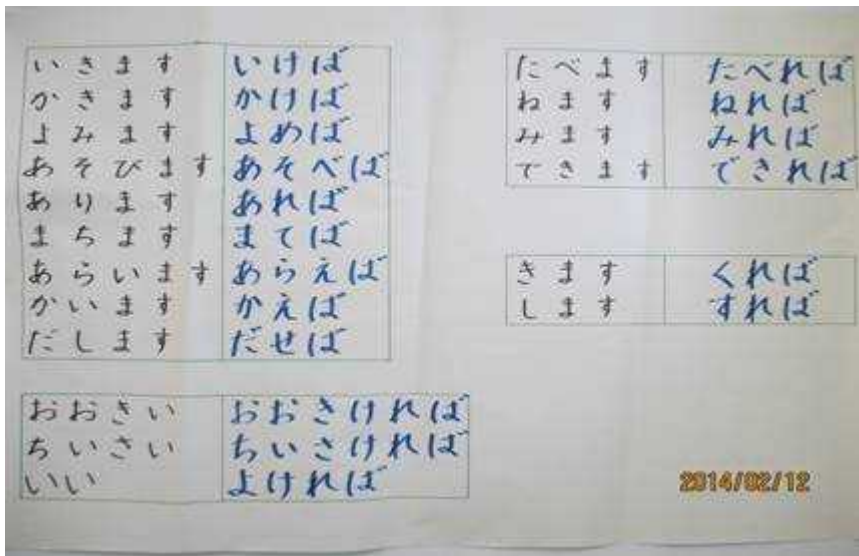 いきます いけば
かきます かけば
よみます よめば
あそびます あそべば
あります あれば
まちます まてば
あらいます あらえば
かいます かえば
だします だせば
おおきい おおきければ
ちいさい ちいさければ
いい よければ
たべます たべれば
ねます ねれば
みます みれば
できます できれば
きます くれば
します すれば
2014/02/12